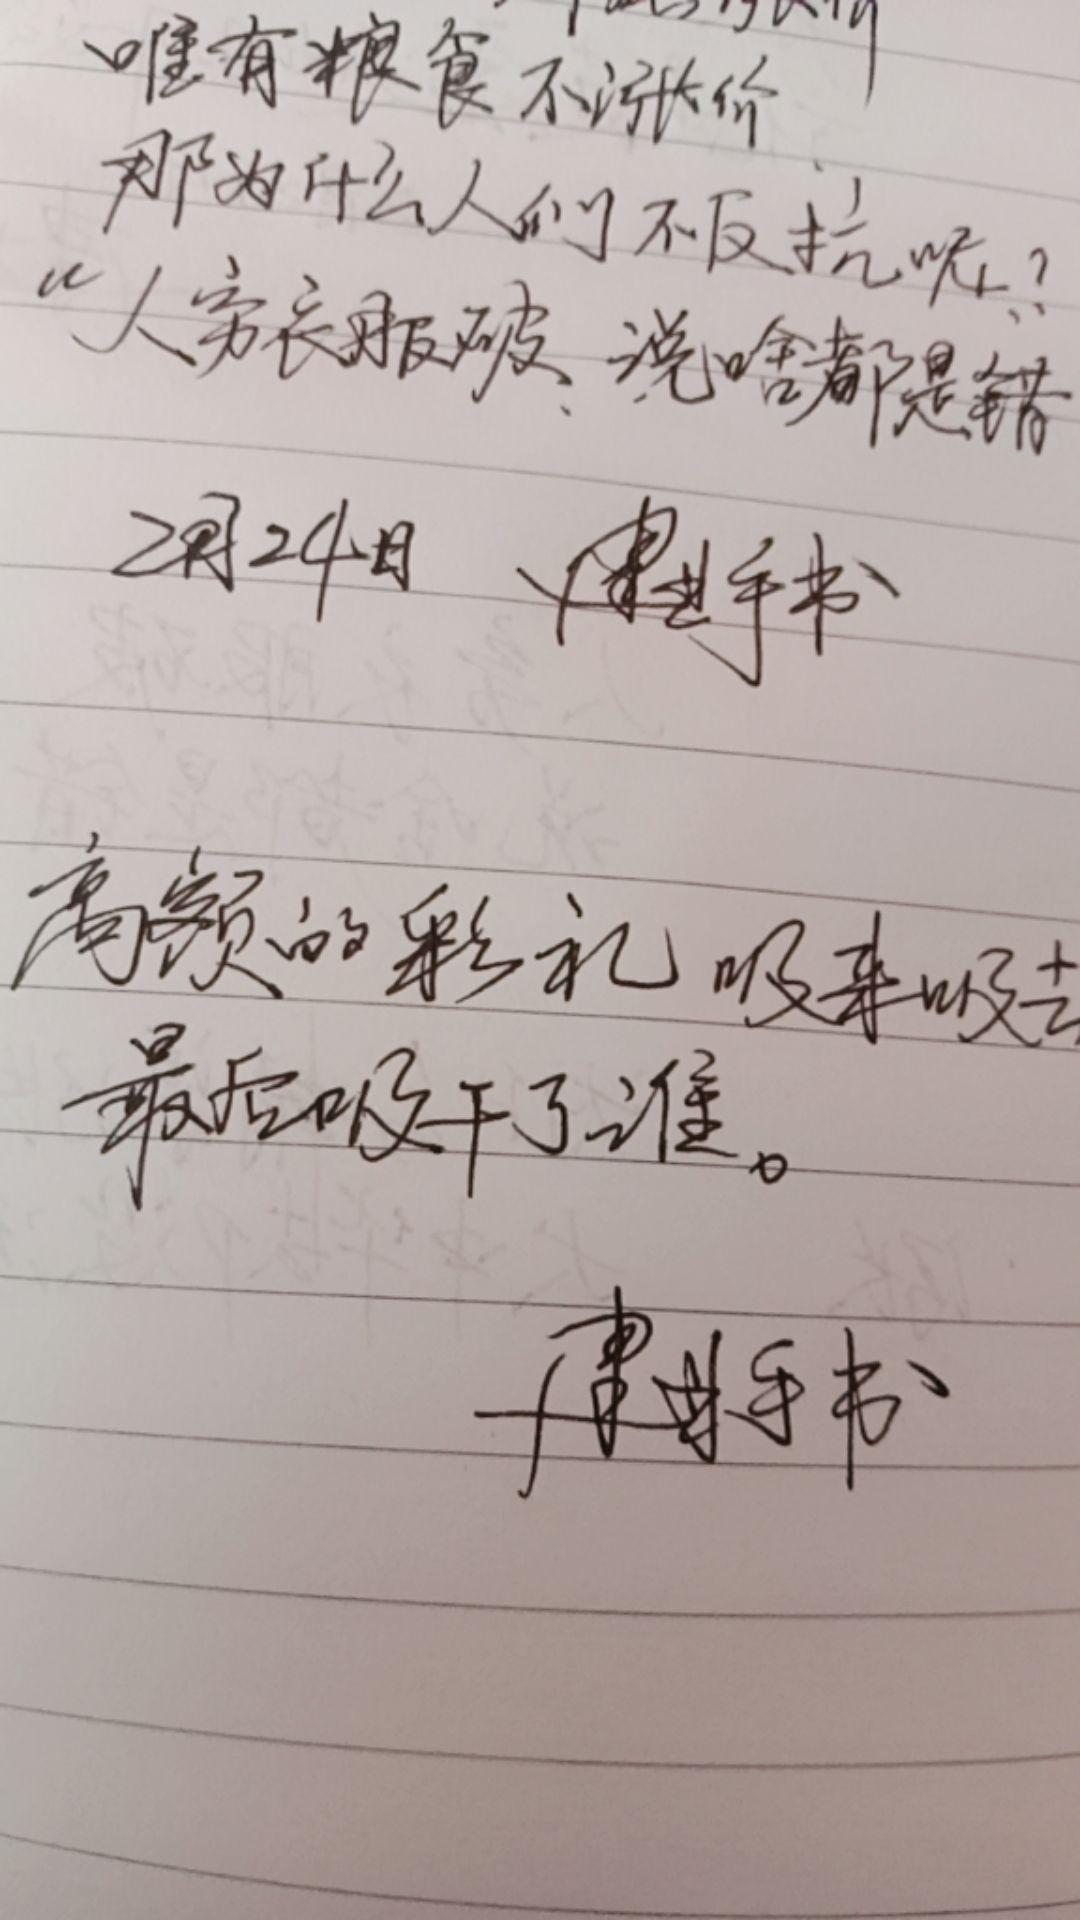 唯有粮食不涨价
那为什么人们不反抗呢？
“人穷衣服破、说啥都是错
2月24日 手书
高额的彩礼 吸来吸去
最后吸干了谁。
手书